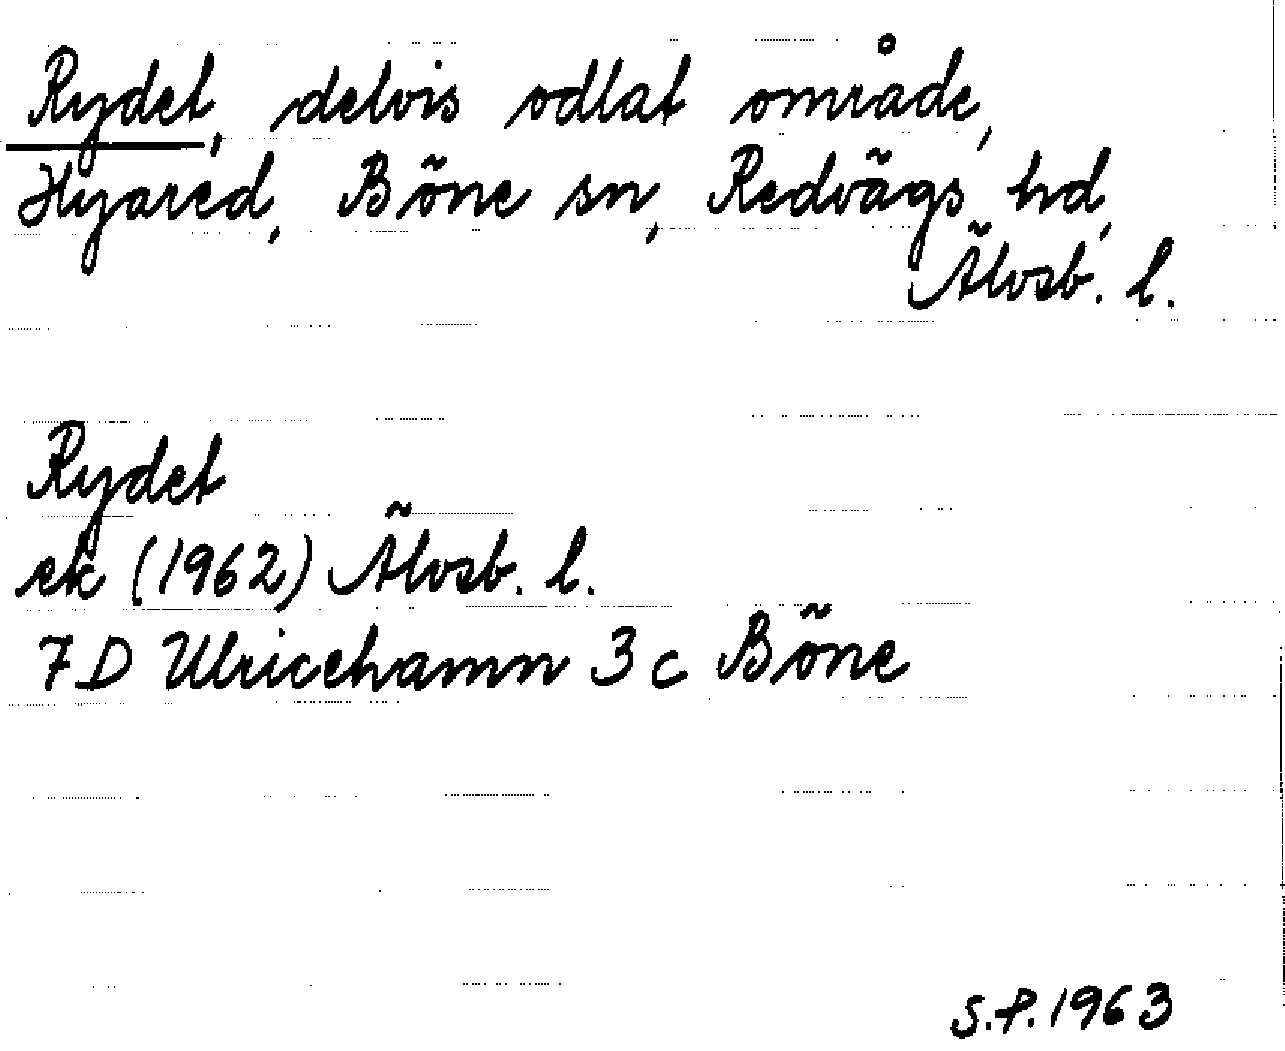 Rydet, delvis odlat område,
Hyared, Böne sn, Redvägs hd,
Älvsb. l.
Rydet
ek (1962) Älvsb. l.
7D Ulricehamn 3c Böne
S.P. 1963